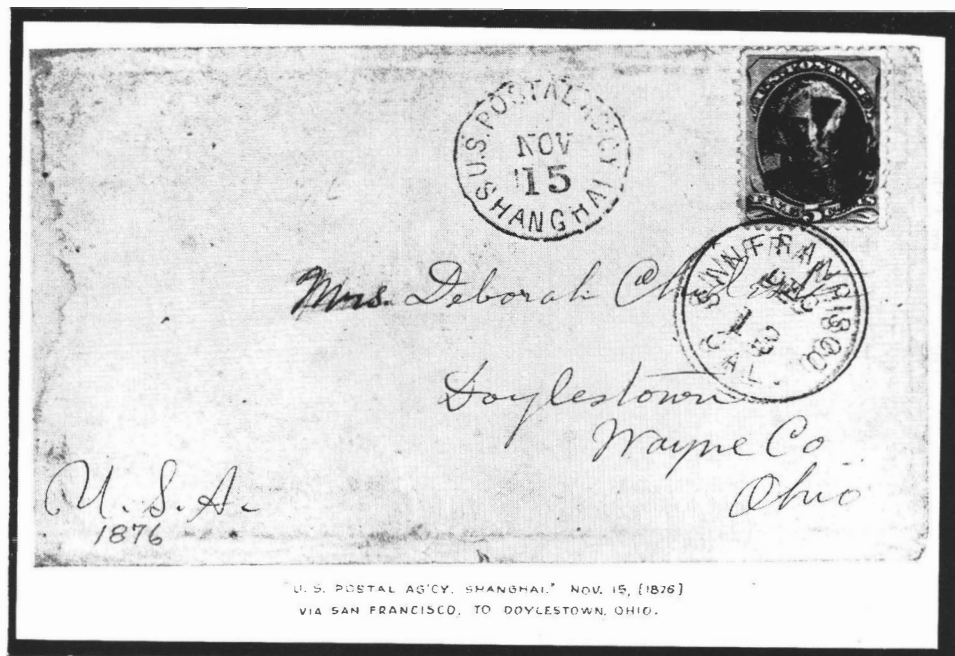 U.S. POSTAL AG'CY
NOV
15
SHANGHAI
U.S. POSTAGE
FIVE 5 CENTS
SAN FRANCISCO
DEC
CAL.
Mrs. Deborah
Doylestown
Wayne Co
Ohio
U. S. A.
1876
"U. S. POSTAL AG'CY. SHANGHAI." NOV. 15, [1876]
VIA SAN FRANCISCO, TO DOYLESTOWN, OHIO.